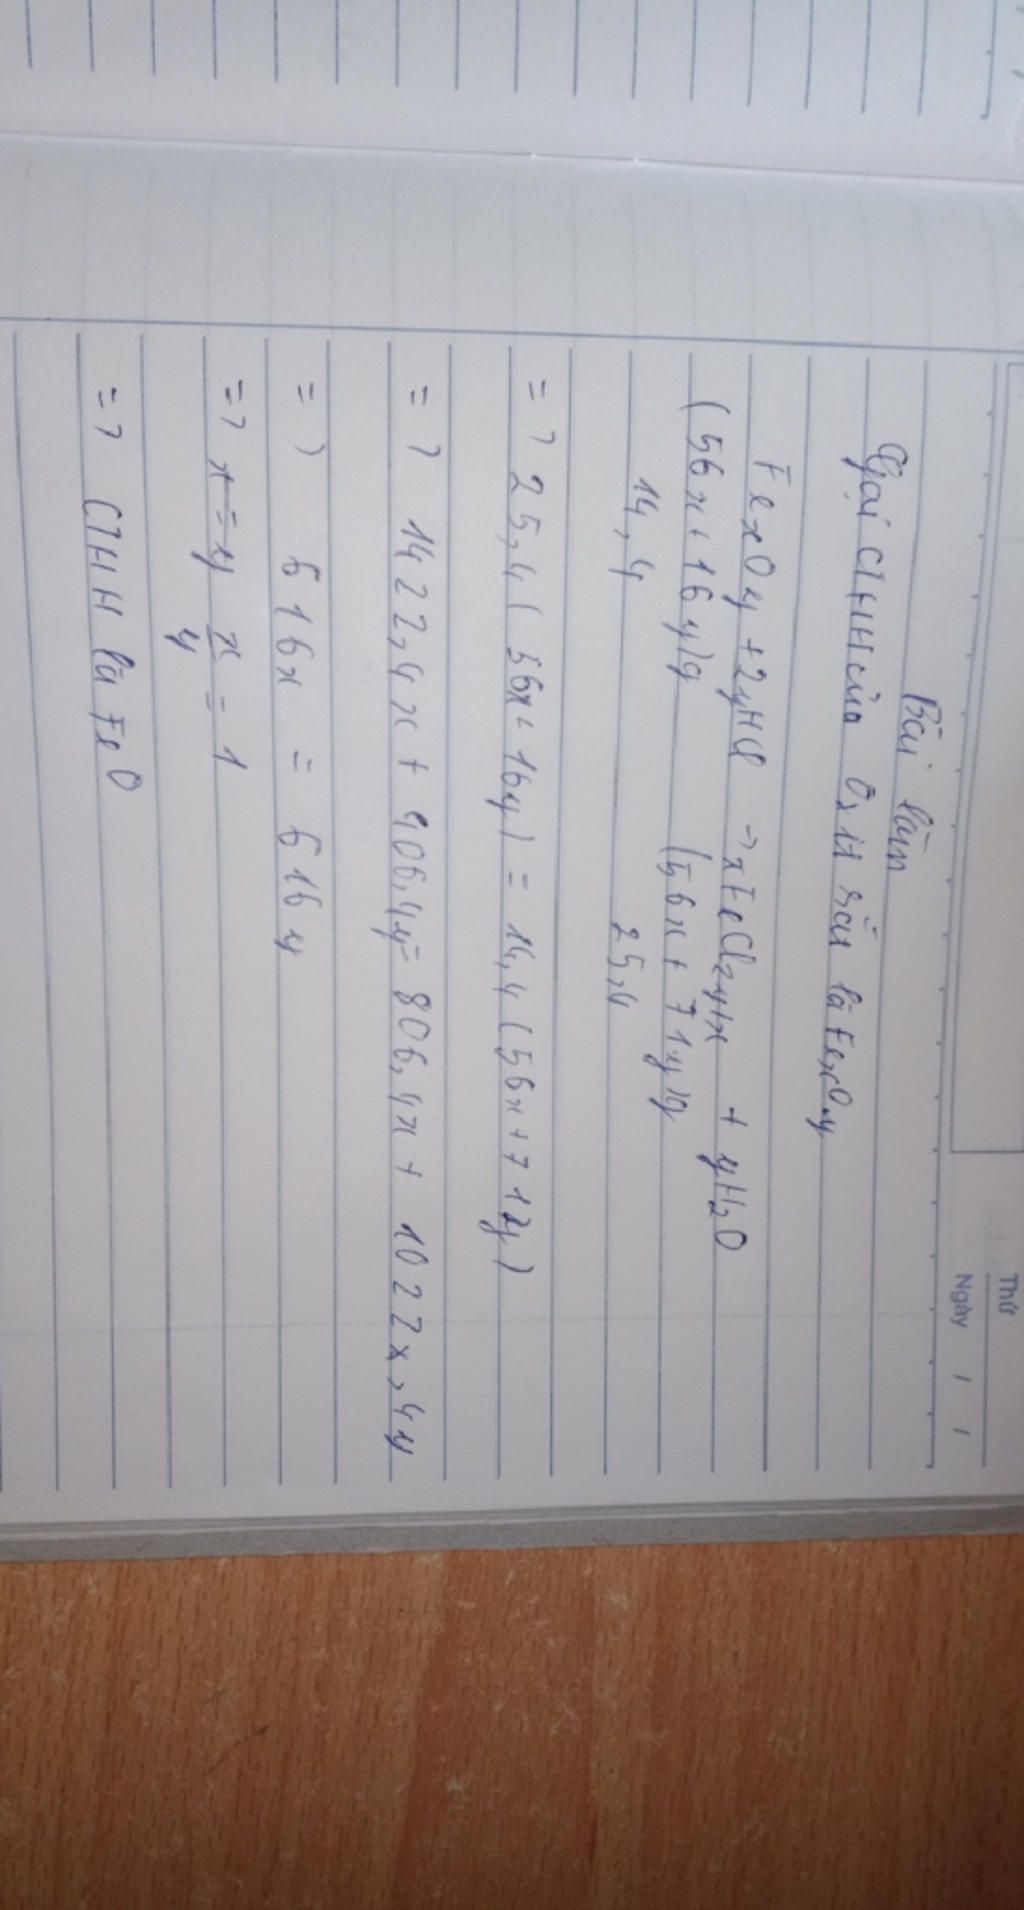 Thứ
Ngày / /
Bài làm
Gọi CTHH của Oxit sắt là FexOy
FexOy + 2yHCl -> xFeCl2y/x + yH2O
(56x + 16y)g (56x + 71y)g
14,4 25,4
=> 25,4 (56x + 16y) = 14,4 (56x + 71y)
=> 1422,4x + 406,4y = 806,4x + 1022,4y
=> 616x = 616y
=> x = y x/y = 1
=> CTHH là FeO